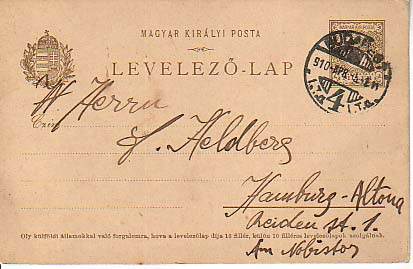 MAGYAR KIRÁLYI POSTA
LEVELEZŐ-LAP
Herrn
Czím
Heldberg
Hamburg-Altona
st. 1
Am Nobistor
Oly külfölddi államokkal való forgalomra, hova a levelezőlap díja 10 fillér, külön 10 filléres levelezőlapok szolgálnak.